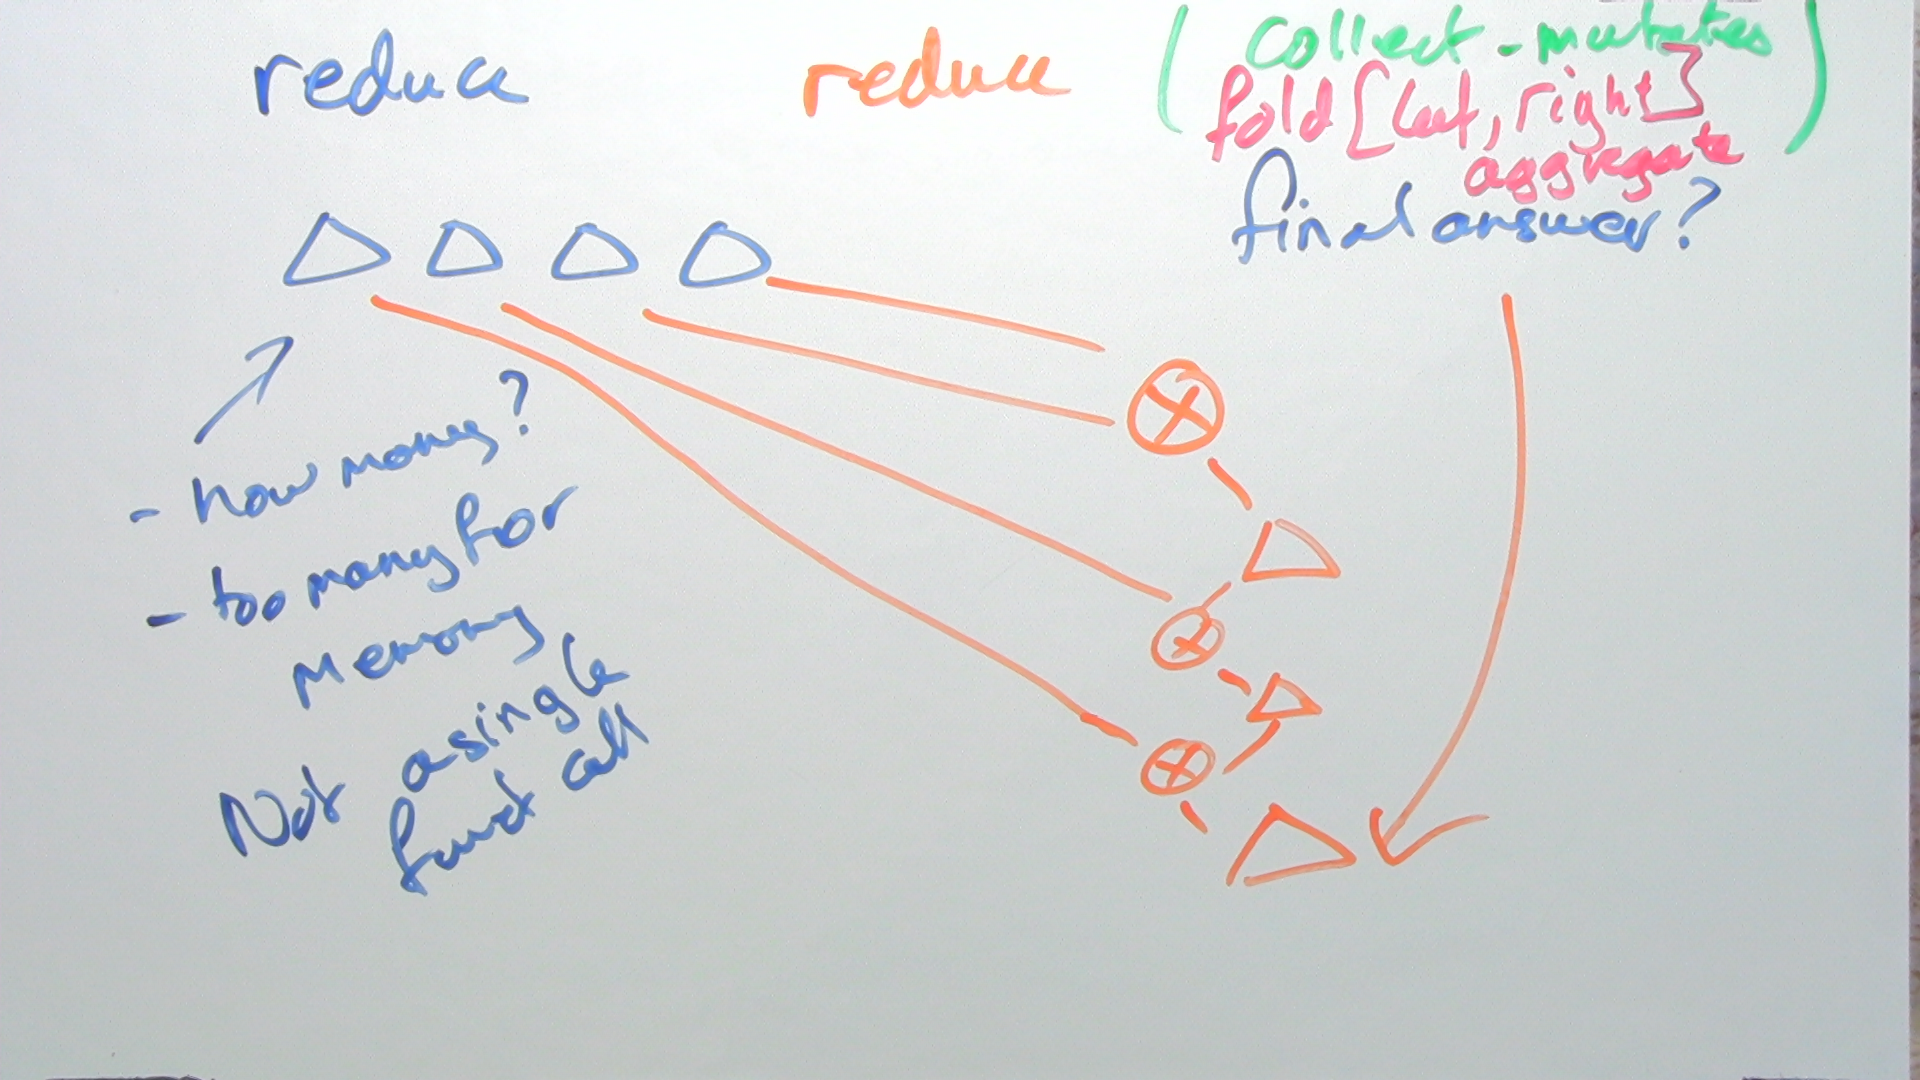 reduce
reduce
( collect - mutates )
fold [left, right]
aggregate
final answer?
- how many?
- too many for
memory
Not a single
funct call